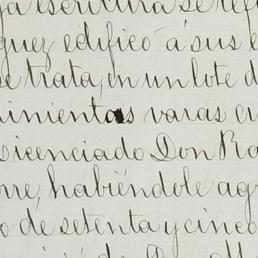 escritura se ref
guez edificó á sus e
se trata, en un lote d
inientas varas cu
Licenciado Don Ra
rre, habiéndole agr
o de setenta y cinco